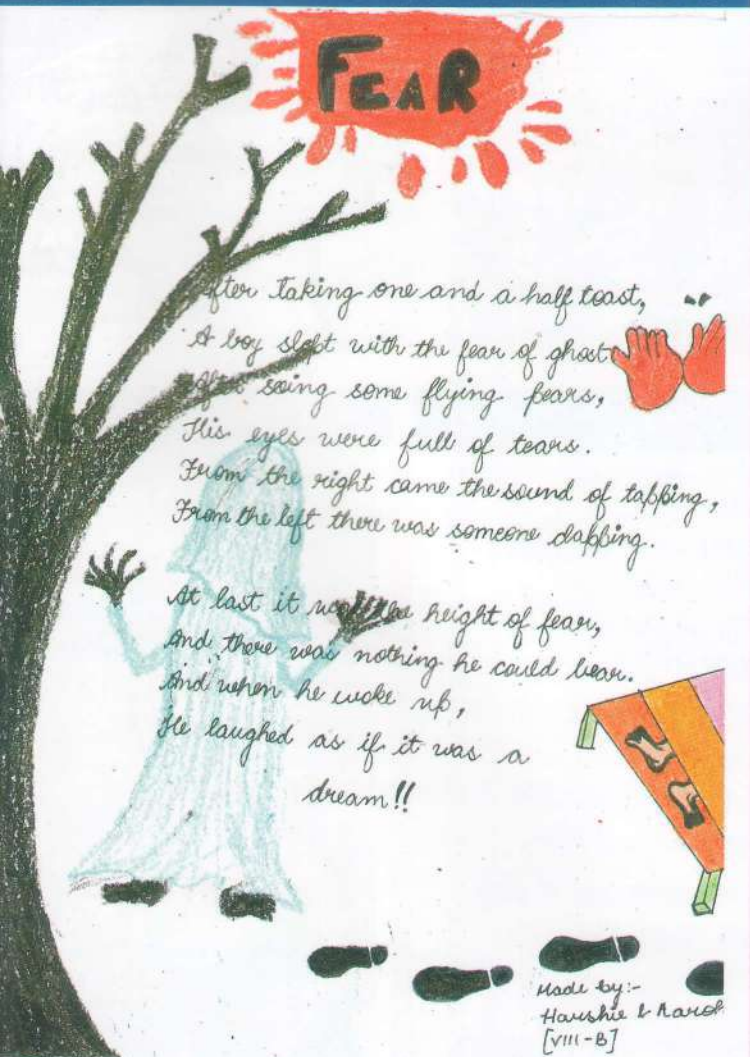 FEAR
After taking one and a half toast,
A boy slept with the fear of ghost
After seeing some flying pears,
His eyes were full of tears.
From the right came the sound of tapping,
From the left there was someone clapping.
At last it was the height of fear,
And there was nothing he could bear.
And when he woke up,
He laughed as if it was a
dream!!
Made by:-
Harshie &
[VIII-B]